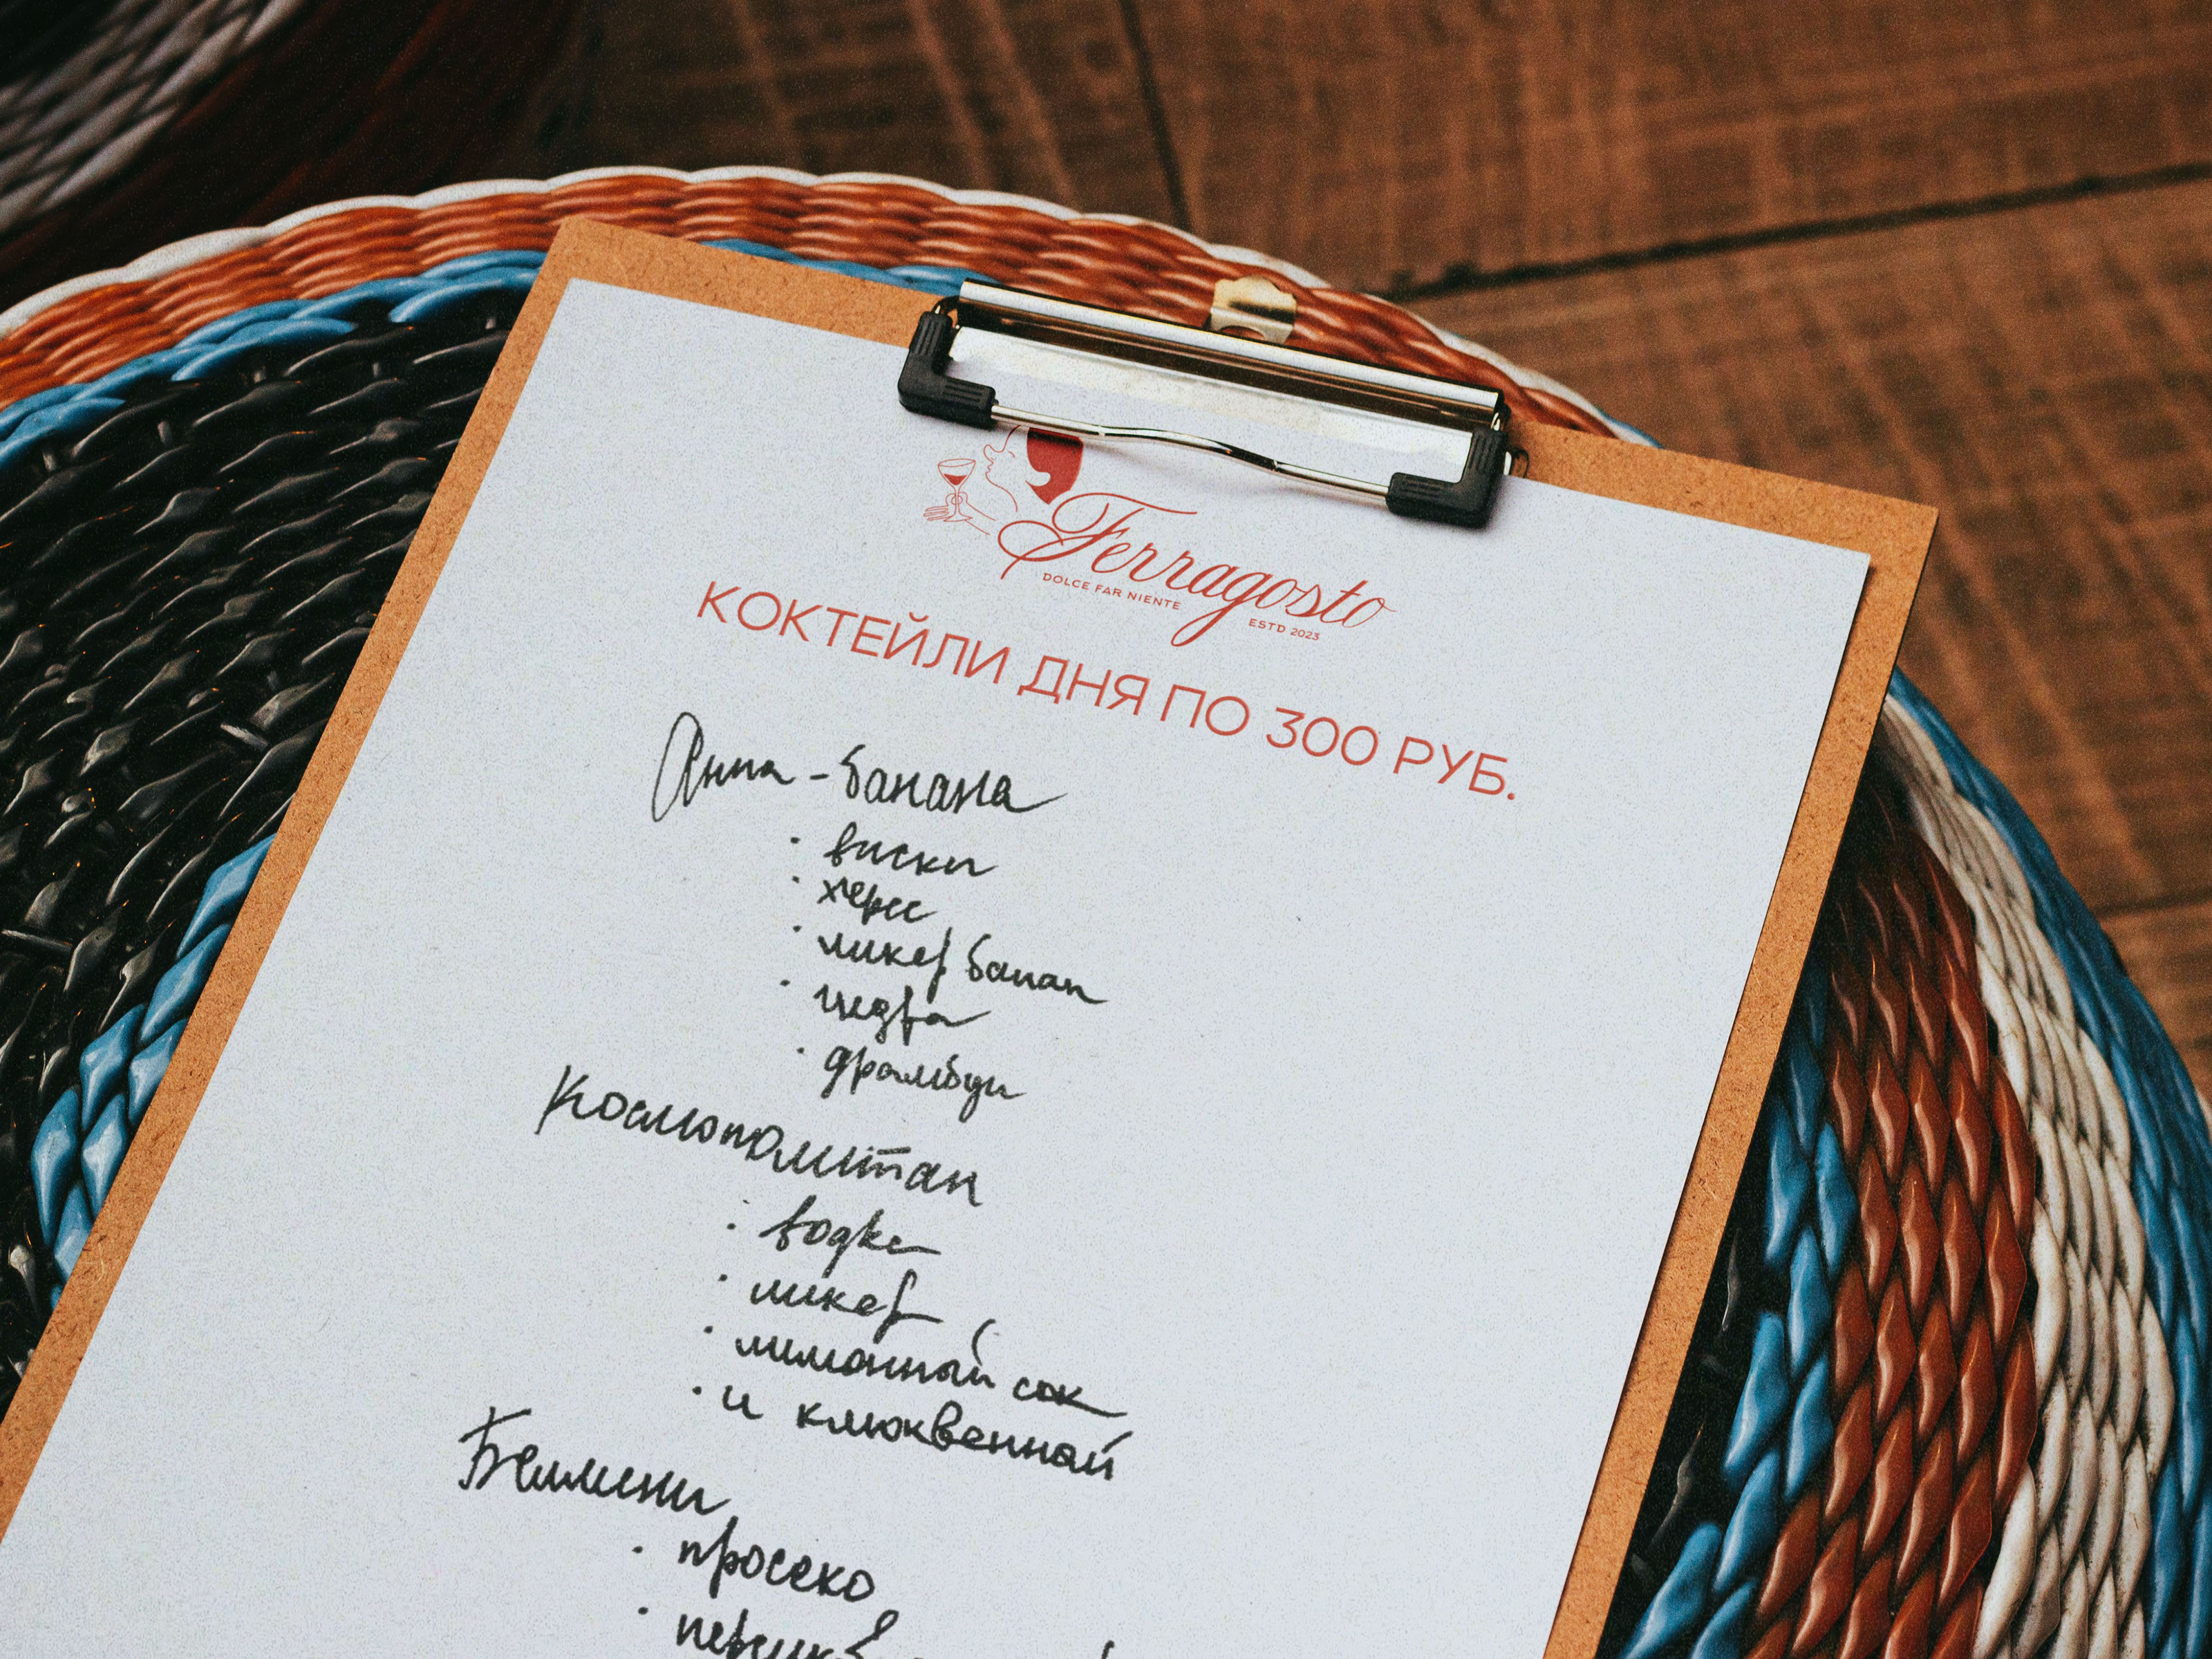 Ferragosto
DOLCE FAR NIENTE
ESTD 2023
КОКТЕЙЛИ ДНЯ ПО 300 РУБ.
Анна-банана
· виски
· херес
· ликер банан
· цедра
· драмбуи
Космополитан
· водка
· ликер
· лимонный сок
· и клюквенный
Беллини
· просеко